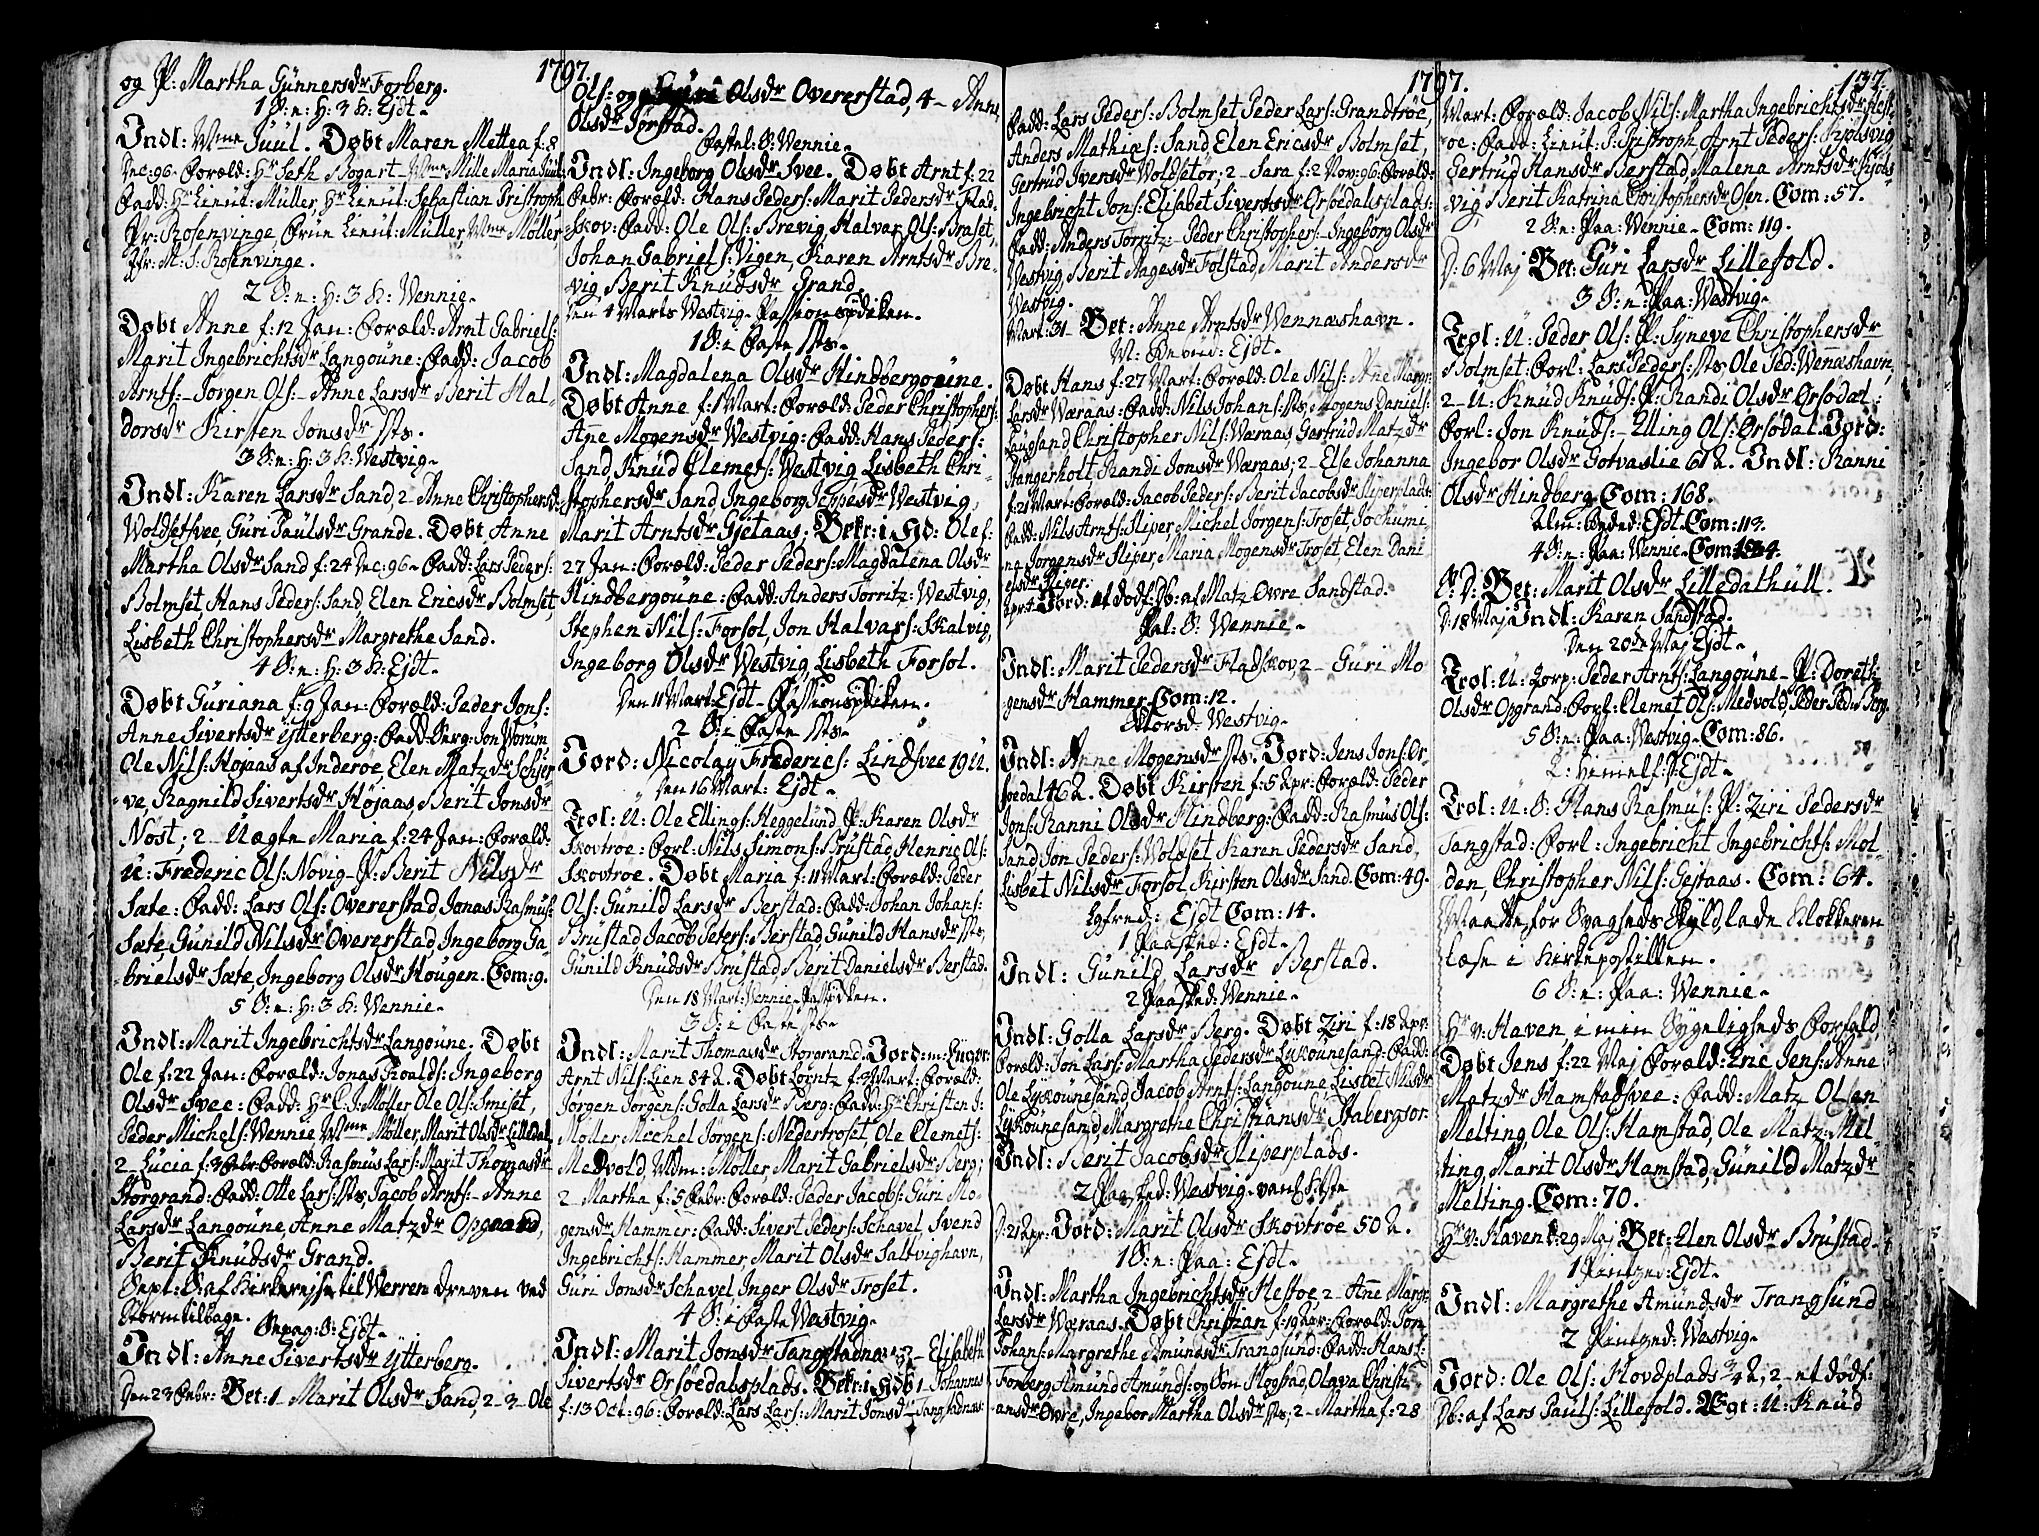 1797.
og P: Martha Gunnersdr Forberg.
1 S: n: H: 3 K: Ejdt-
Indl: Mme Juul. Døbt Maren Mettea f: 8
Dec: 96- Foræld: Hr Seth Bogart- Mme Mille Maria Juul
Fadd: Hr Lieut: Müller, Hr Lieut: Sebastian Pristroph
Pr: Rosenvinge, Frue Lieut: Müller Mme Møller
Jfr: M: S: Rosenvinge.
2 S: n: H: 3 K: Wennie-
Døbt Anne f: 12 Jan: Foræld: Arnt Gabriels:
Marit Ingebrichtsdr Langoune: Fadd: Jacob
Arnts- Jorgen Ols- Anne Larsdr Berit Hal-
dorsdr Kirsten Jonsdr sts.
3 S: n: H: 3 K: Westvig-
Indl: Karen Larsdr Sand, 2- Anne Christophersdr
Woldsetsvee, Guri Paulsdr Grande. Døbt Anne
Martha Olsdr Sand f: 24 Dec: 96- Fadd: Lars Peders:
Bolmset Hans Peders: Sand Elen Ericsdr Bolmset,
Lisbeth Christophersdr Margrethe Sand.
4 S: n: H: 3 K: Ejdt-
Døbt Guriana f: 9 Jan: Foræld: Peder Jons:
Anne Sivertsdr Ytterberg: Fadd: Serg: Jon Worum
Ole Nils: Højaas af Inderøe, Elen Matzdr Schjer-
ve, Ragnild Sivertsdr Højaas, Berit Jonsdr
Nøst; 2- Uægte Maria f: 24 Jan: Foræld:
U: Frederic Ols: Novig- P: Berit Nilsdr
Sæte: Fadd: Lars Ols: Overerstad Jonas Rasmus:
Sæte, Gunild Nilsdr Overerstad, Ingeborg Ga-
brielsdr Sæte, Ingeborg Olsdr Hougen. Com: 9.
5 S: n: H: 3 K: Wennie-
Indl: Marit Ingebrichtsdr Langoune. Døbt
Ole f: 22 Jan: Foræld: Jonas Roalds: Ingeborg
Olsdr Svee: Fadd: Hr C: J: Møller Ole Ols: Smiset,
Peder Michels: Wennie Mme Møller, Marit Olsdr Lilledal,
2- Lucia f: 3 Febr: Foræld: Rasmus Lars: Marit Thomasdr
Storgrand: Fadd: Otte Lars: sts, Jacob Arnts- Anne
Larsdr Langoune, Anne Matzdr Opgaard,
Berit Knudsdr Grand.
Sept: S: af Kirkerejse til Werren dreven ved
Storm tilbage. Sexag: S: Ejdt-
Indl: Anne Sivertsdr Ytterberg.
Den 23 Febr: Bet: 1- Marit Olsdr Sand, 2- 3- Ole
Ols: og Guri Olsdr Overerstad, 4- Anne
Olsdr Jørstad.
Fastel: S: Wennie-
Indl: Ingeborg Olsdr Svee. Døbt Arnt f: 22
Febr: Foræld: Hans Peders: Marit Pedersdr Flad-
skov: Fadd: Ole Ols: Brevig, Halvar Ols: Braset,
Johan Gabriels: Vigen, Karen Arntsdr Bre-
vig, Berit Knudsdr Grand.
Den 4 Marts Westvig- Passionspdiken.
1 S: i Faste sts-
Indl: Magdalena Olsdr Hindbergoune.
Døbt Anne f: 1 Mart: Foræld: Peder Christophers:
Anne Mogensdr Westvig: Fadd: Hans Peders:
Sand, Knud Clemets: Westvig Lisbeth Chri-
stophersdr Sand, Ingeborg Jeppesdr Westvig,
Marit Arntsdr Gjetaas; Bekr: i HD: Ole f:
27 Jan: Foræld: Peder Peders: Magdalena Olsdr
Hindbergoune: Fadd: Anders Torritz: Westvig,
Stephen Nils: Forsol, Jon Halvars: Skalvig,
Ingeborg Olsdr Westvig, Lisbeth Forsol.
Den 11 Mart: Ejdt- Passionspdiken.
2 S: i Faste sts-
Jord: Nicolay Frederics: Lindsvee 19 U.
Den 16 Mart: Ejdt-
Trol: U: Ole Ellings: Heggelund P: Karen Olsdr
Skovtroe: Forl: Nils Simons: Brustad, Henric Ols:
Skovtroe. Døbt Maria f: 11 Mart: Foræld: Peder
Ols: Gunild Larsdr Berstad: Fadd: Johan Johans:
Brustad Jacob Peters: Berstad, Gunild Hansdr sts,
Gunild Knudsdr Brustad, Berit Danielsdr Berstad.
Den 18 Mart: Wennie- Passpdiken.
3 S: i Faste sts-
Indl: Marit Thomasdr Storgrand. Jord: m:
Arnt Nils: Lien 84 A. Døbt Lorntz f: 3 Mart: Foræld:
Jørgen Jorgens: Golla Larsdr Berg: Fadd: Hr Christen J:
Møller Michel Jørgens: Nedertroset, Ole Clemets:
Medvold, Mdm: Møller, Marit Gabrielsdr Berg;
2- Martha f: 5 Febr: Foræld: Peder Jacobs: Guri Mo-
gensdr Hammer: Fadd: Sivert Peders: Schavel Svend
Ingebrichts: Hammer, Marit Olsdr Saltvighavn,
Guri Jonsdr Schavel Inger Olsdr Troset.
4 S: i Faste Westvig-
Indl: Marit Jonsdr Tangstadnæs, 2- Elisabeth
Sivertsdr Orsøedalsplads. Bekr: i HD: 1- Johannes
f: 13 Oct: 96: Foræld: Lars Lars: Marit Jonsdr Tangstadnæs:
1797.
Fadd: Lars Peders: Bolmset Peder Lars: Grandtrøe,
Anders Mathias: Sand Elen Ericsdr Bolmset,
Gertrud Iversdr Woldsetør; 2- Sara f: 2 Nov: 96: Foræld:
Ingebricht Jons: Elisabet Sivertsdr Orsøedalsplads:
Fadd: Anders Torritz- Peder Christophers- Ingeborg Olsdr
Westvig, Berit Aagesdr Folstad, Marit Andersdr
Westvig.
Mart: 31- Bet: Anne Arntsdr Wennæshavn.
M: Beved: Ejdt-
Døbt Hans f: 27 Mart: Foræld: Ole Nils: Anne Margr:
Larsdr Wæraas: Fadd: Nils Johans: sts, Mogens Daniels:
Langsand Christopher Nils: Wæraas, Gertrud Matzdr
Stangerholt Randi Jonsdr Wæraas; 2- Else Johanna
f: 21 Mart: Foræld: Jacob Peders: Berit Jacobsdr Hiperplads:
Fadd: Nils Arnts: Hiper, Michel Jørgens: Troset, Jochumi-
na Jørgensdr Hiper, Maria Mogensdr Troset, Elen Dani-
elsdr Hiper.
Jord: et dødf: Pb: af Matz Ovre Sandstad.
Pal: S: Wennie-
Indl: Marit Pedersdr Fladskov, 2- Guri Mo-
gensdr Hammer. Com: 12.
Skiersd: Westvig-
Indl: Anne Mogensdr sts. Jord: Jens Jons: Or-
søedal 46 A. Døbt Kirsten f: 5 Apr: Foræld: Peder
Jons: Ranni Olsdr Hindberg: Fadd: Rasmus Ols:
Sand Jon Peders: Woldset Karen Pedersdr Sand,
Lisbet Nilsdr Forsol, Kirsten Olsdr Sand. Com: 49.
Lgfred: Ejdt Com: 14.
1 Paasked: Ejdt-
Indl: Gunild Larsdr Berstad.
2 Paasked: Wennie-
Indl: Golla Larsdr Berg. Døbt Ziri f: 18 Apr:
Foræld: Jon Lars: Martha Pedersdr Lykounesand: Fadd:
Ole Lykounesand, Jacob Arnts: Langoune, Lisbet Nilsdr
Lykounesand, Margrethe Christiansdr Stabergsør.
Indl: Berit Jacobsdr Hiperplads.
2 Paasked: Westvig-
D: 21 Apr: Jord: Marit Olsdr Skovtroe 50 A.
1 S: n: Paa: Ejdt-
Indl: Martha Ingebrichtsdr Hestøe, 2- Anne Margr:
Larsdr Wæraas. Døbt Christian f: 19 Apr: Foræld: Jon
Johans: Margrethe Amundsdr Trangsund: Fadd: Hans J:
Forberg Amund Amunds: og Søn Hogstad, Olava Christi-
ansdr Ovre, Ingebor Martha Olsdr sts; 2- Martha f: 28
137.
Mart: Foræld: Jacob Nils: Martha Ingebrichtsdr Hest-
øe: Fadd: Lieut: Pristroph Arnt Peders: Kjølsvig,
Gertrud Hansdr Berstad, Malena Arntsdr Kjøls-
vig, Berit Katrina Christophersdr Osen. Com: 57.
2 S: n: Paa: Wennie- Com: 119.
D: 6 Maj Bet: Guri Larsdr Lillefold.
3 S: n: Paa: Westvig-
Trol: U: Peder Ols: P: Syneve Christophersdr
Bolmset: Forl: Lars Peders: sts Ole Ped: Wennæshavn,
2- U: Knud Knuds: P: Randi Olsdr Orsødal:
Forl: Jon Knuds:- Elling Ols: Orsødal. Jord:
Ingebor Olsdr Gotvaslie 61 A. Indl: Ranni
Olsdr Hindberg. Com: 168.
Alm: Beded: Ejdt. Com: 113.
4 S: n: Paa: Wennie- Com: 134.
S: D: Bet: Marit Olsdr Lilledathull.
D: 18 Maj Indl: Karen Sandstad.
Den 20de Maj Ejdt-
Trol: U: Corp: Peder Arnts: Langoune- P: Doreth:
Olsdr Opgrand: Forl: Clemet Ols: Medvold, Peder Ped: Berg.
5 S: n: Paa: Westvig- Com: 86.
K: Himmelf: Ejdt-
Trol: U: S: Hans Rasmus: P: Ziri Pedersdr
Tangstad: Forl: Ingebricht Ingebrichts: Mol-
den, Christopher Nils: Gejtaas. Com: 64.
Maatte, for Svagheds Skyld, lade Klokkeren
læse i Kirkepostillen.
6 S: n: Paa: Wennie-
Hr v: Haven, i min Sygeligheds Forfald,
Døbt Jens f: 22 Maj Foræld: Eric Jens: Anne
Matzdr Hamstadsvee: Fadd: Matz Olsen
Melting, Ole Ols: Hamstad, Ole Matz: Mel-
ting, Marit Olsdr Hamstad, Gunild Matzdr
Melting. Com: 70.
Hr v: Haven d: 29 Maj Bet: Elen Olsdr Brustad-
1 Pintzed: Ejdt-
Indl: Margrethe Amundsdr Trangsund
2 Pintzed: Westvig-
Jord: Ole Ols: Hovdplads 3/4 A, 2- et dødf:
Db: af Lars Pauls: Lillefold. Ægt: U: Knud